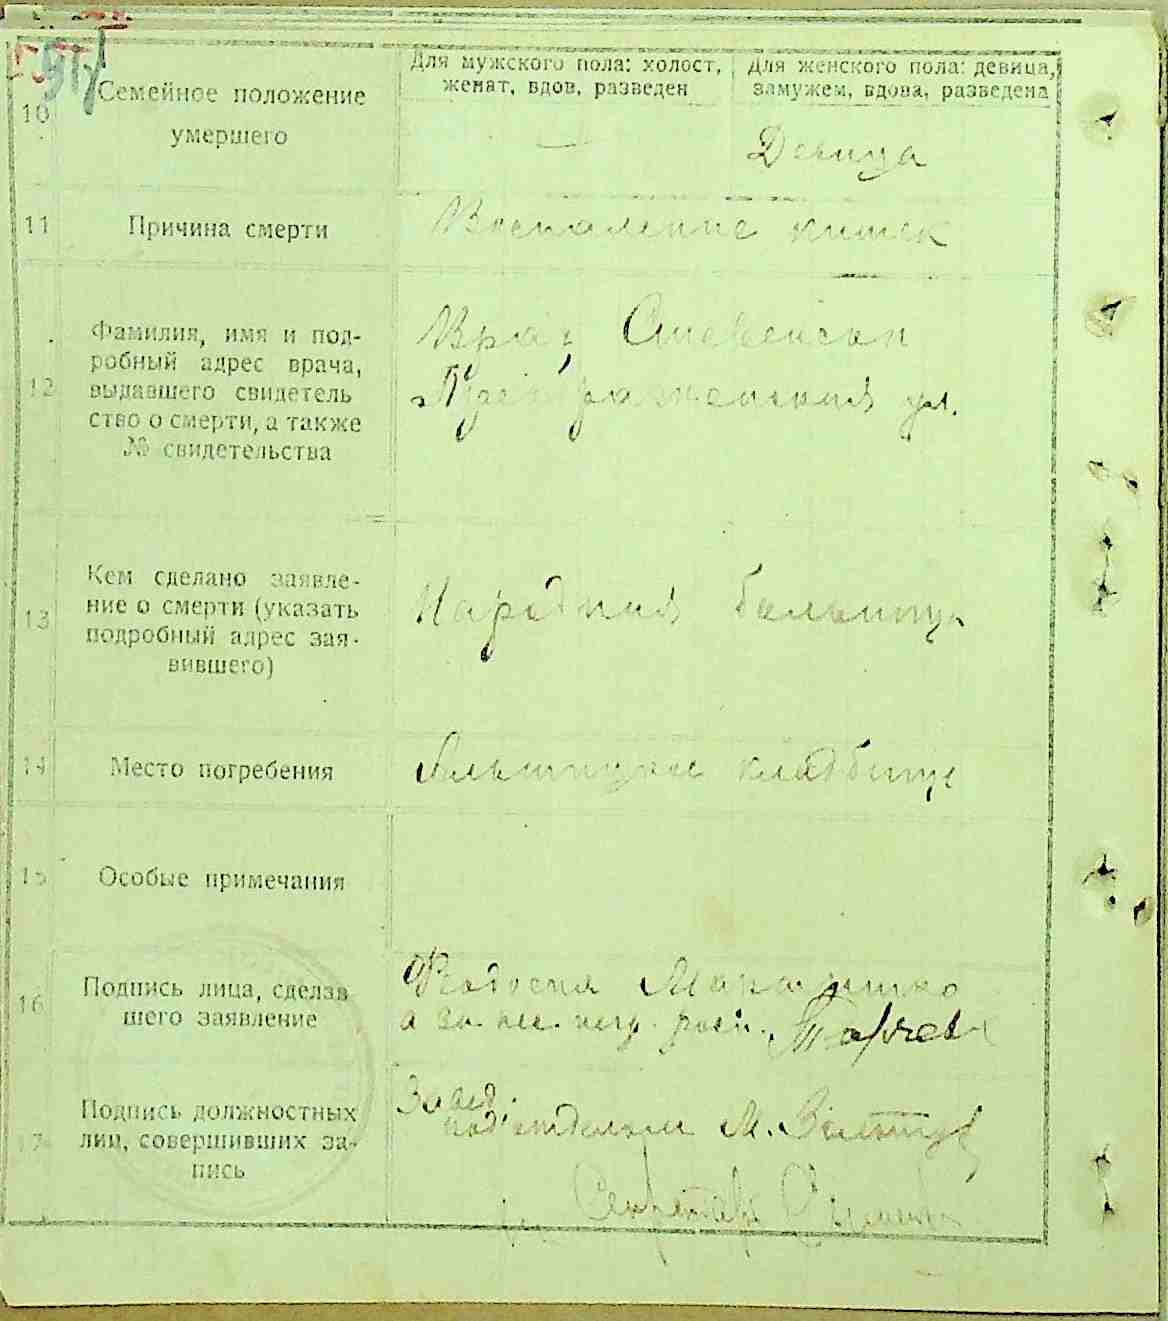 Для мужского пола: холост, женат, вдов, разведен
Для женского пола: девица, замужем, вдова, разведена
10
Семейное положение
умершего
Девица
11
Причина смерти
Воспаление кишек
12
Фамилия, имя и под-
робный адрес врача,
выдавшего свидетель
ство о смерти, а также
№ свидетельства
Врач
ул.
13
Кем сделано заявле-
ние о смерти (указать
подробный адрес зая-
вившего)
Народная больница
14
Место погребения
кладбище
15
Особые примечания
16
Подпись лица, сделав
шего заявление
Федосия
а за нее негр. расп.
17
Подпись должностных
лиц, совершивших за-
пись
Завед.
подотделом М.
Секретарь